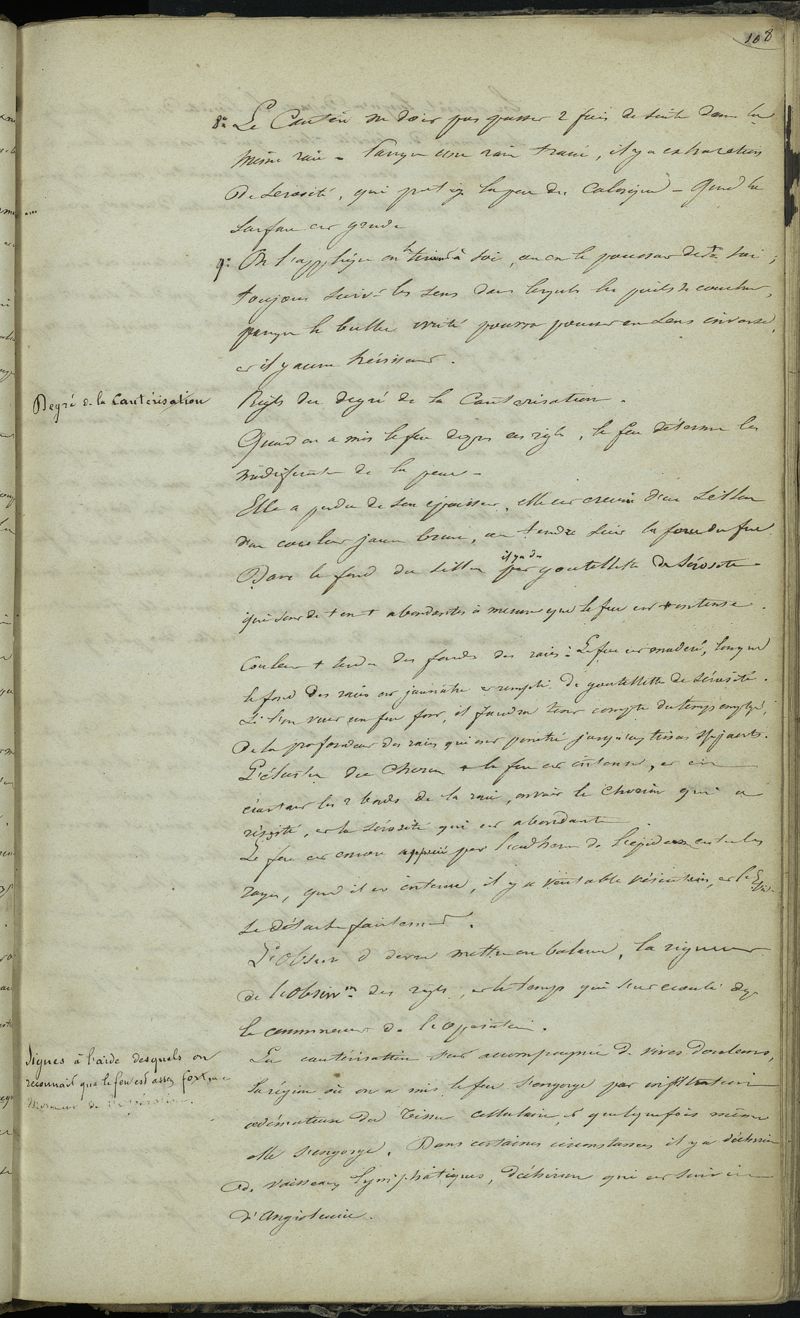 108
8° Le Cautère ne doit pas passer 2 fois de suite dans la
même raie - Lorsqu'une raie tracée, il y a exhalation
De Serosité, qui peut la peau du Calorique - Quand la
surface est grande
9° On l'applique en tirant à soi, ou en le poussant devt soi,
toujours suivt les sens dans lesquels les poils se couchent,
parceque le bulbe irrité pourra pousser en sens inverse,
et il y aura hérissement.
Degré de la Cautérisation
Règles du degré de la Cautérisation.
Quand on a mis le feu d'après ces règles, le feu détermine les
modifications de la peau -
Elle a perdu de son épaisseur, elle est creusée d'un Sillon
d'une couleur jaune brune, + tendre suivt la force du feu
Dans le fond du sillon il y a des gouttelettes de sérosité
qui sont de + en + abondantes à mesure que le feu est + intense.
Couleur + tendre des fonds des raies : Le feu est modéré, lorsque
le fond des raies est jaunâtre et rempli de gouttelettes de sérosité.
Si l'on veut un feu fort, il faudra tenir compte du temps employé,
De la profondeur des raies qui ont pénétré jusqu'aux tissus sjacents.
L'élasticité du Chorion + le feu est intense, et en
écartant les 2 bords de la raie, on voit le chorion qui a
résisté, et la sérosité qui est abondante
Le feu est encore apprécié par l'adhérence de l'épiderme entre les
rayes, quand il est intense, il y a véritable vésication, et l'Epid.
se détache facilement.
L'Observ. devra mettre en balance, la rigueur
de l'Observon des règles, et le temps qui s'est écoulé dep.
le commencement de l'opération.
Signes à l'aide desquels on
reconnait que le feu est assez fort, au
Moment de l'opération.
La cautérisation est accompagnée de vives douleurs,
la région où on a mis le feu s'engorge par infiltration
œdémateuse du Tissu cellulaire, & quelquefois même
elle s'engorge. Dans certaines circonstances il y a déchirure
de vaisseaux lymphatiques, déchirure qui est suivie
d'Angioleucie.